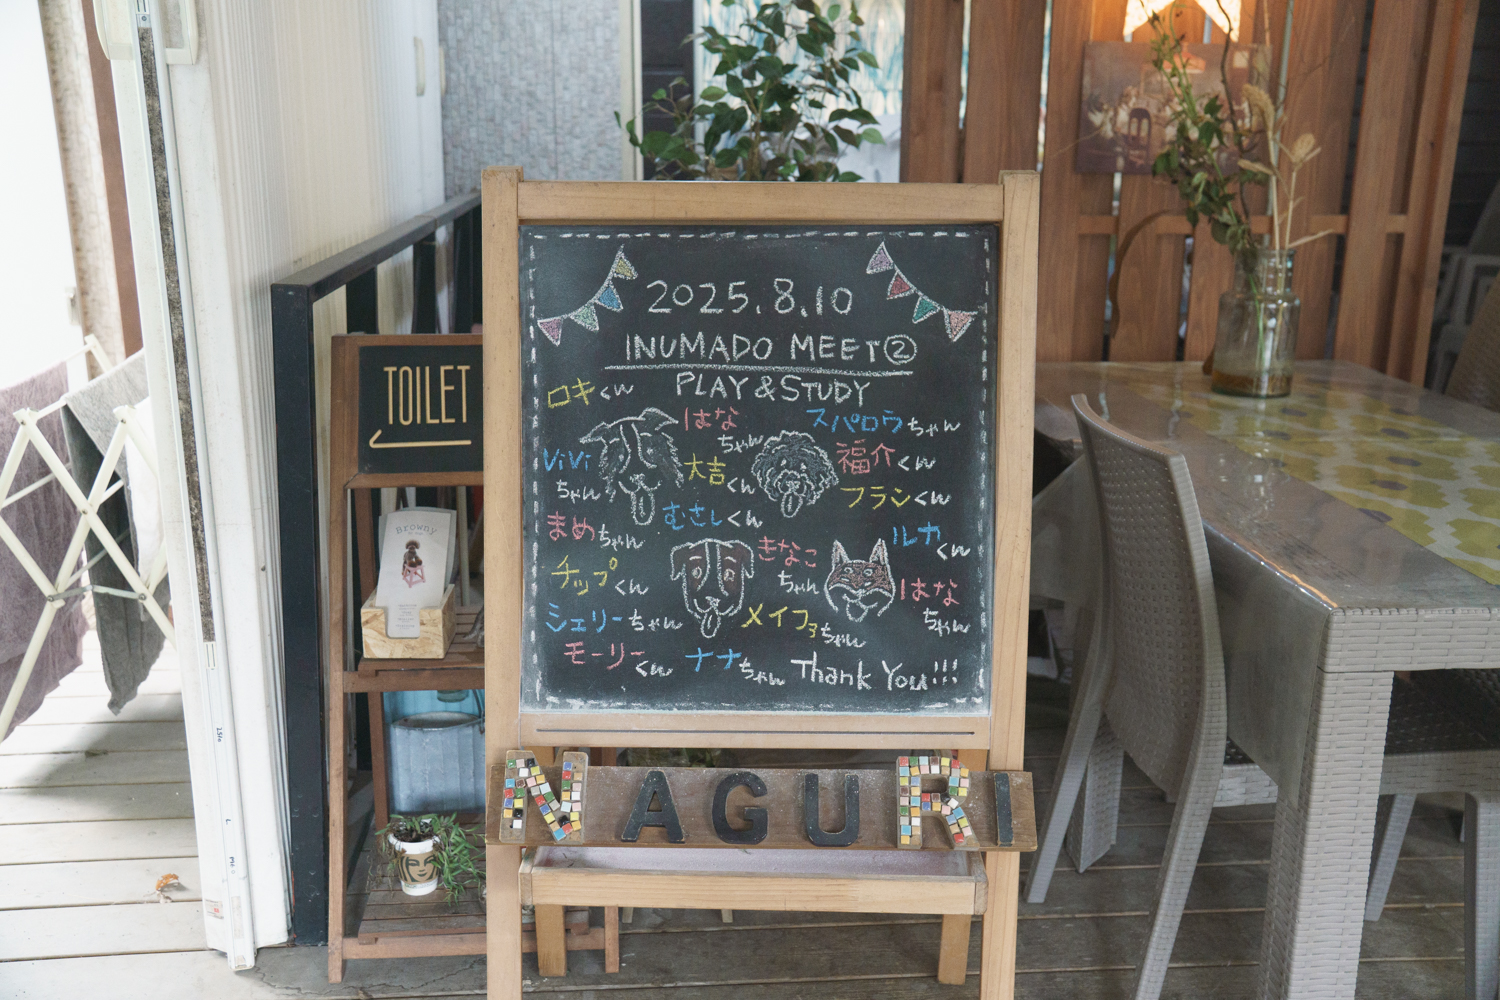 2025.8.10
INUMADO MEET②
PLAY&STUDY
ロキくん
はなちゃん
スパロウちゃん
ViViちゃん
大吉くん
福介くん
フランくん
むさしくん
まめちゃん
きなこちゃん
ルカくん
チップくん
はなちゃん
シェリーちゃん
メイフぅちゃん
モーリーくん
ナナちゃん
Thank You!!!
NAGURI
TOILET
Browny